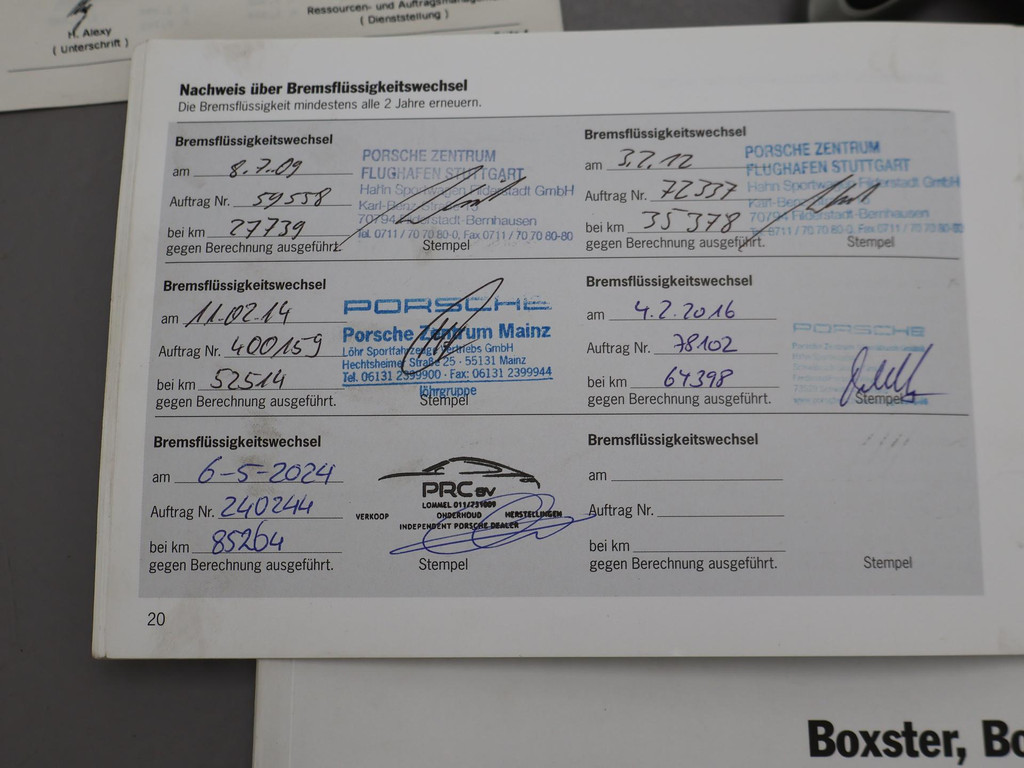 H. Alexy
( Unterschrift )
Ressourcen- und
( Dienststellung )
Nachweis über Bremsflüssigkeitswechsel
Die Bremsflüssigkeit mindestens alle 2 Jahre erneuern.
Bremsflüssigkeitswechsel
am 8.7.09
Auftrag Nr. 59558
bei km 27739
gegen Berechnung ausgeführt.
PORSCHE ZENTRUM
FLUGHAFEN STUTTGART
Hahn Sportwagen Filderstadt GmbH
Karl-Benz-
70794 Filderstadt-Bernhausen
Tel. 0711 / 70 70 80-0, Fax 0711 / 70 70 80-80
Stempel
Bremsflüssigkeitswechsel
am 3.2.12
Auftrag Nr. 72337
bei km 35378
gegen Berechnung ausgeführt.
PORSCHE ZENTRUM
FLUGHAFEN STUTTGART
Hahn Sportwagen Filderstadt GmbH
Karl-Benz-
70794 Filderstadt-Bernhausen
Tel. 0711 / 70 70 80-0, Fax 0711 / 70 70 80-80
Stempel
Bremsflüssigkeitswechsel
am 11.02.14
Auftrag Nr. 400159
bei km 52514
gegen Berechnung ausgeführt.
PORSCHE
Porsche Zentrum Mainz
Löhr Sportfahrzeug Vertriebs GmbH
Hechtsheimer Straße 25 - 55131 Mainz
Tel. 06131 2399900 - Fax: 06131 2399944
löhrgruppe
Stempel
Bremsflüssigkeitswechsel
am 4.2.2016
Auftrag Nr. 78102
bei km 64398
gegen Berechnung ausgeführt.
PORSCHE
Porsche Zentrum
Stempel
Bremsflüssigkeitswechsel
am 6-5-2024
Auftrag Nr. 240244
bei km 85264
gegen Berechnung ausgeführt.
PRC BV
LOMMEL 011/731009
VERKOOP ONDERHOUD HERSTELLINGEN
INDEPENDENT PORSCHE DEALER
Stempel
Bremsflüssigkeitswechsel
am
Auftrag Nr.
bei km
gegen Berechnung ausgeführt.
Stempel
20
Boxster,